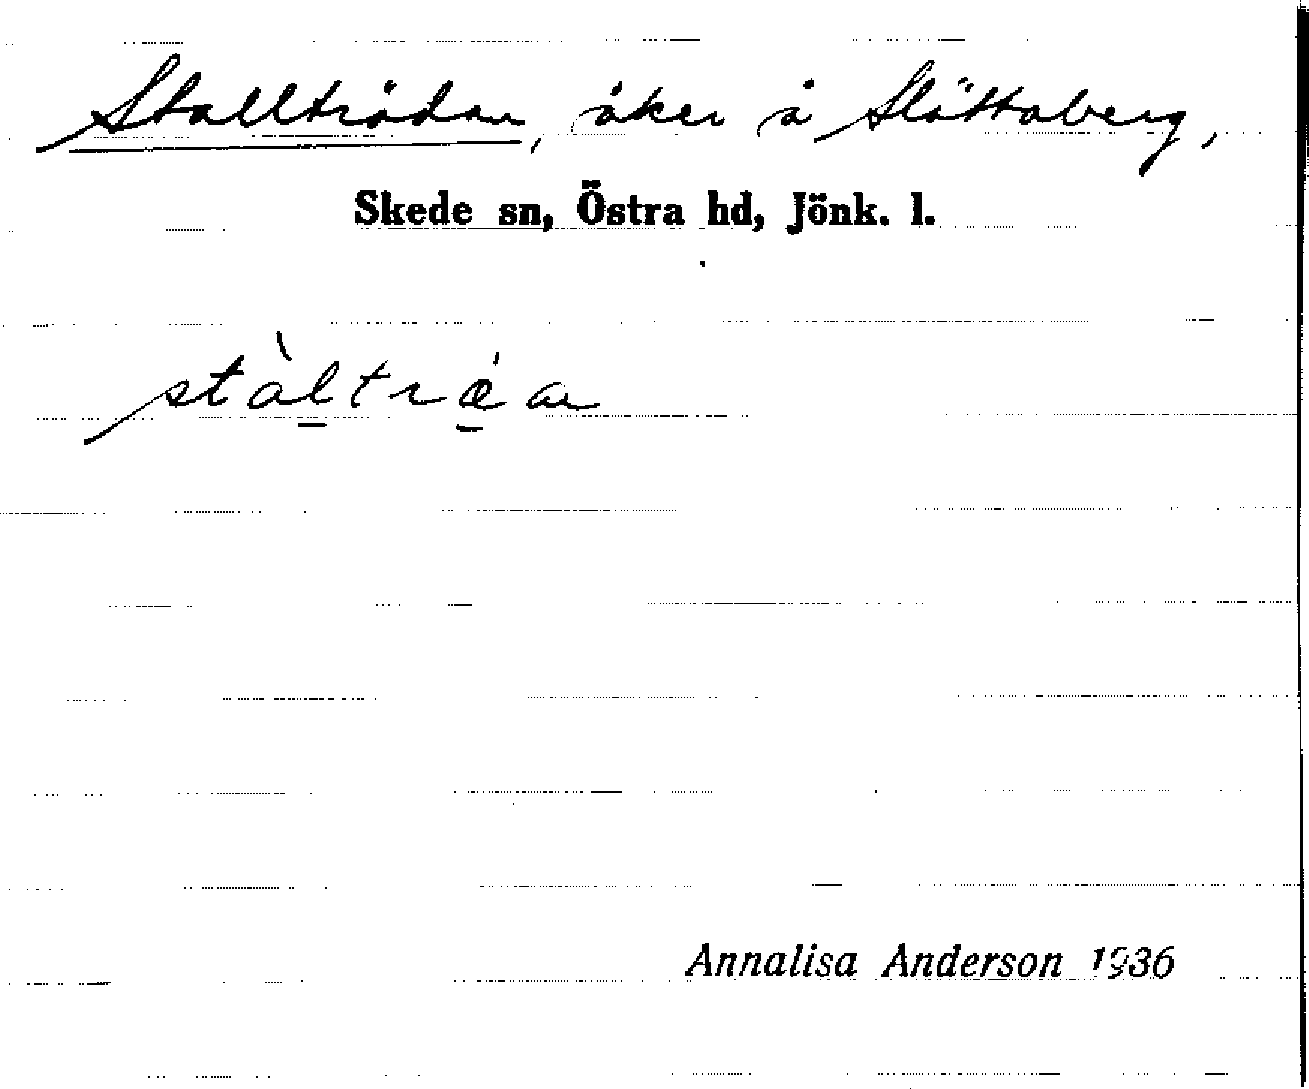 Stallträdan, åker å Slättaberg,
Skede sn, Östra hd, Jönk. l.
stàltrǽan
Annalisa Anderson 1936